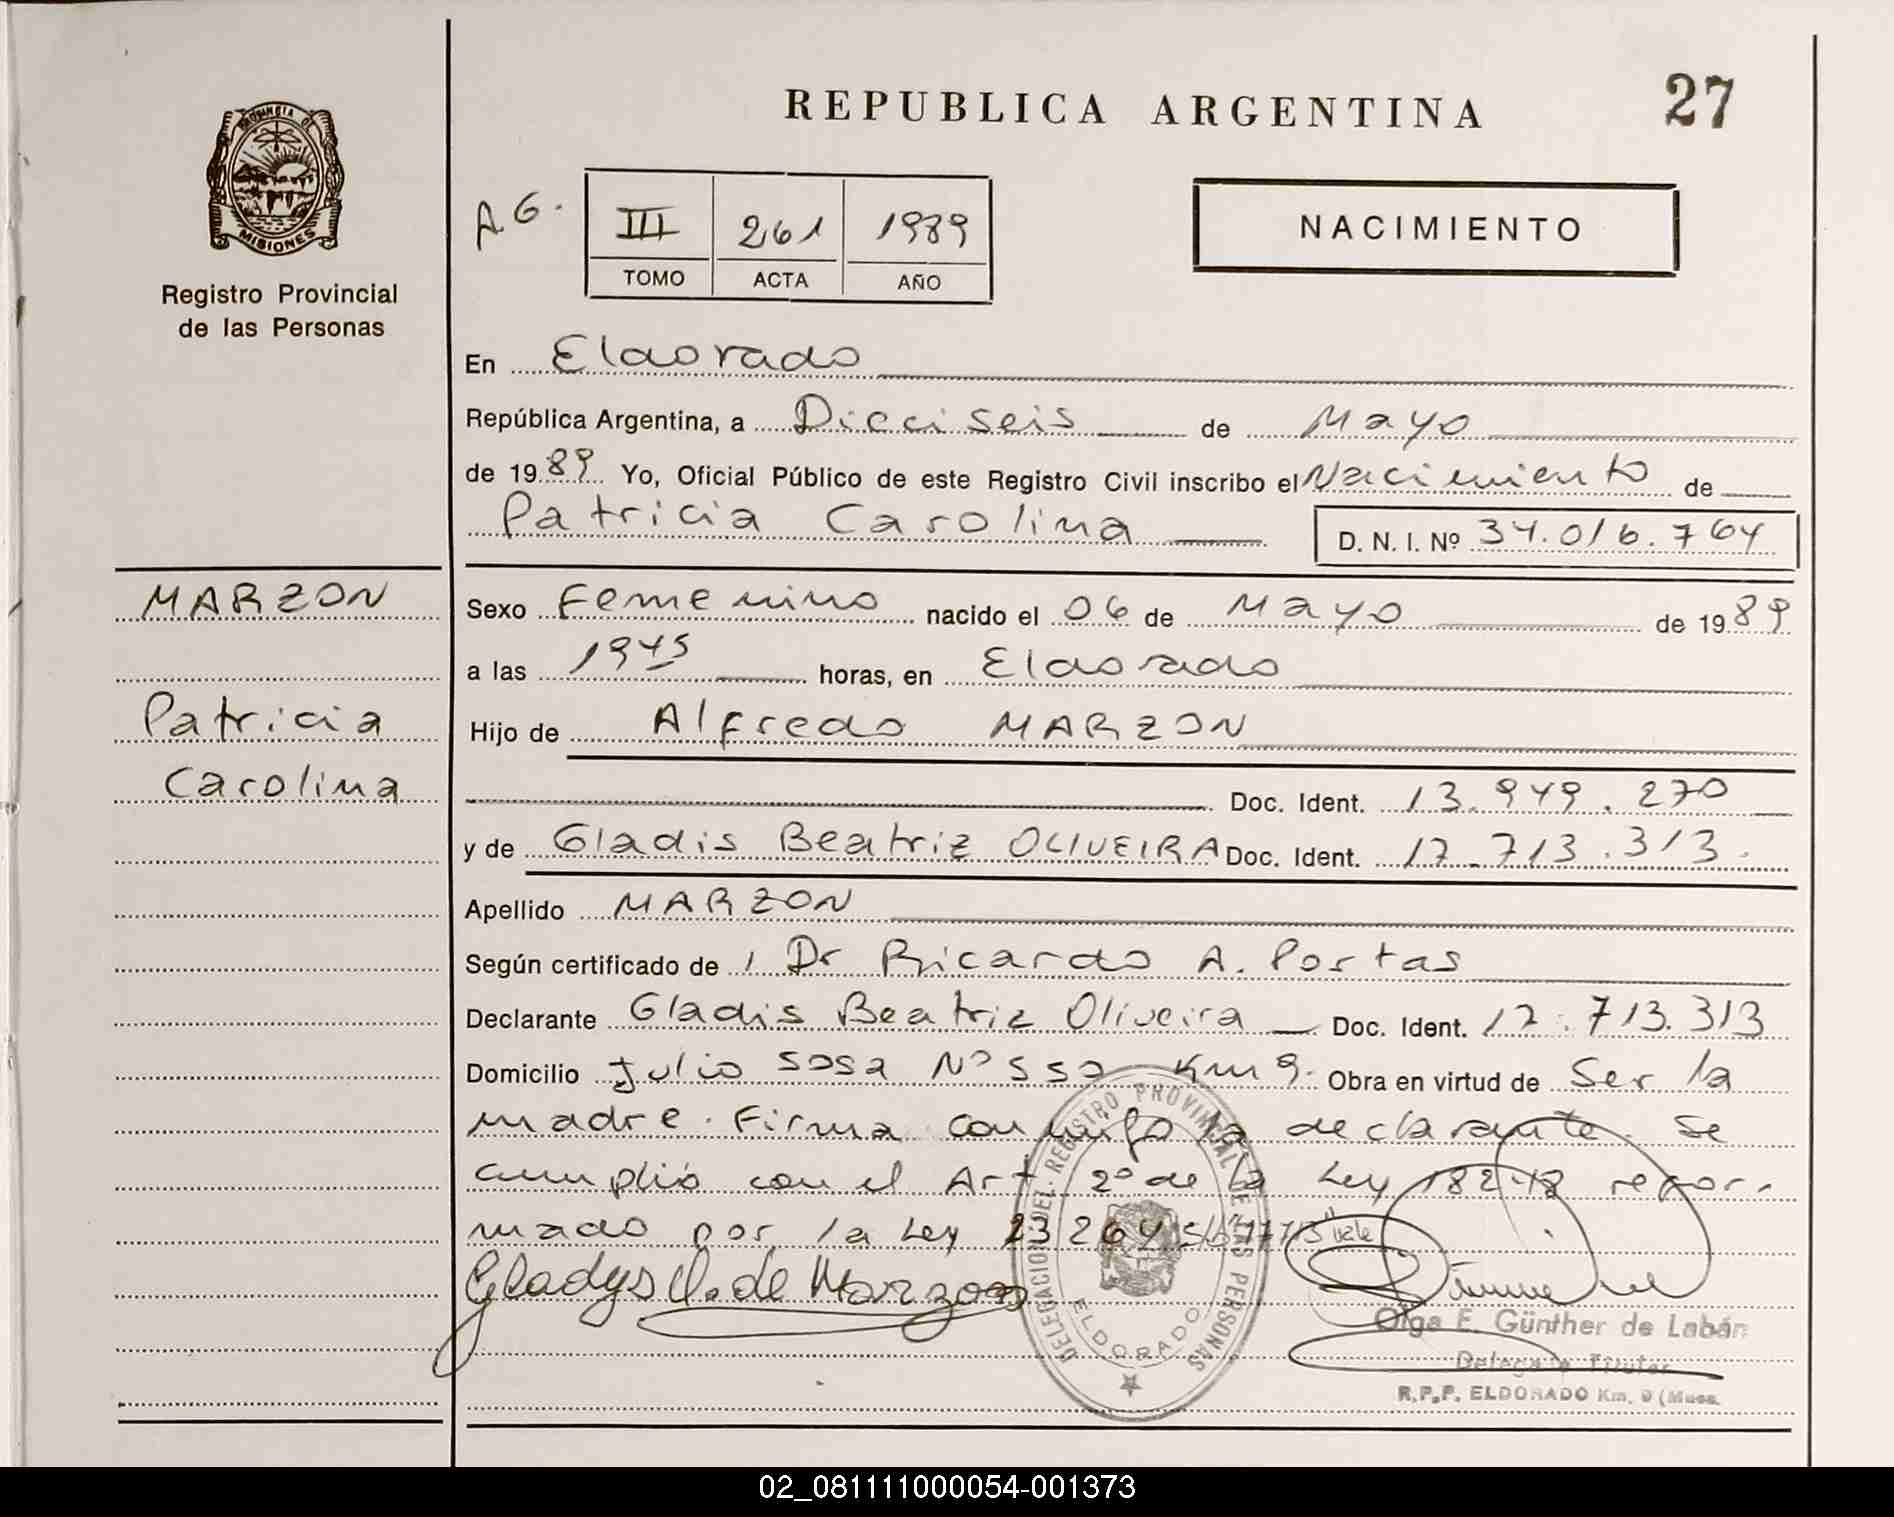 REPUBLICA ARGENTINA
27
PROVINCIA DE
MISIONES
Registro Provincial
de las Personas
A G.
III 261 1989
TOMO ACTA AÑO
NACIMIENTO
En Eldorado
República Argentina, a Dieciseis de Mayo
de 1989 Yo, Oficial Público de este Registro Civil inscribo el Nacimiento de
Patricia Carolina D. N. I. Nº 34.016.764
MARZON
Patricia
Carolina
Sexo Femenino nacido el 06 de Mayo de 1989
a las 1945 horas, en Eldorado
Hijo de Alfredo MARZON
Doc. Ident. 13.949.270
y de Gladis Beatriz OLIVEIRA Doc. Ident. 17.713.313.
Apellido MARZON
Según certificado de Dr Ricardo A. Portas
Declarante Gladis Beatriz Oliveira Doc. Ident. 17.713.313
Domicilio Julio Sosa Nº 552 Km 9. Obra en virtud de Ser la
madre. Firma conmigo la declarante. Se
cumplió con el Art 2º de la Ley 18248 refor-
mado por la Ley 23264 "vale
Gladys O. de Marzon
DELEGACION DEL REGISTRO PROVINCIAL DE LAS PERSONAS
ELDORADO
Olga E. Günther de Labán
Delegada Titular
R.P.P. ELDORADO Km. 9
02_081111000054-001373